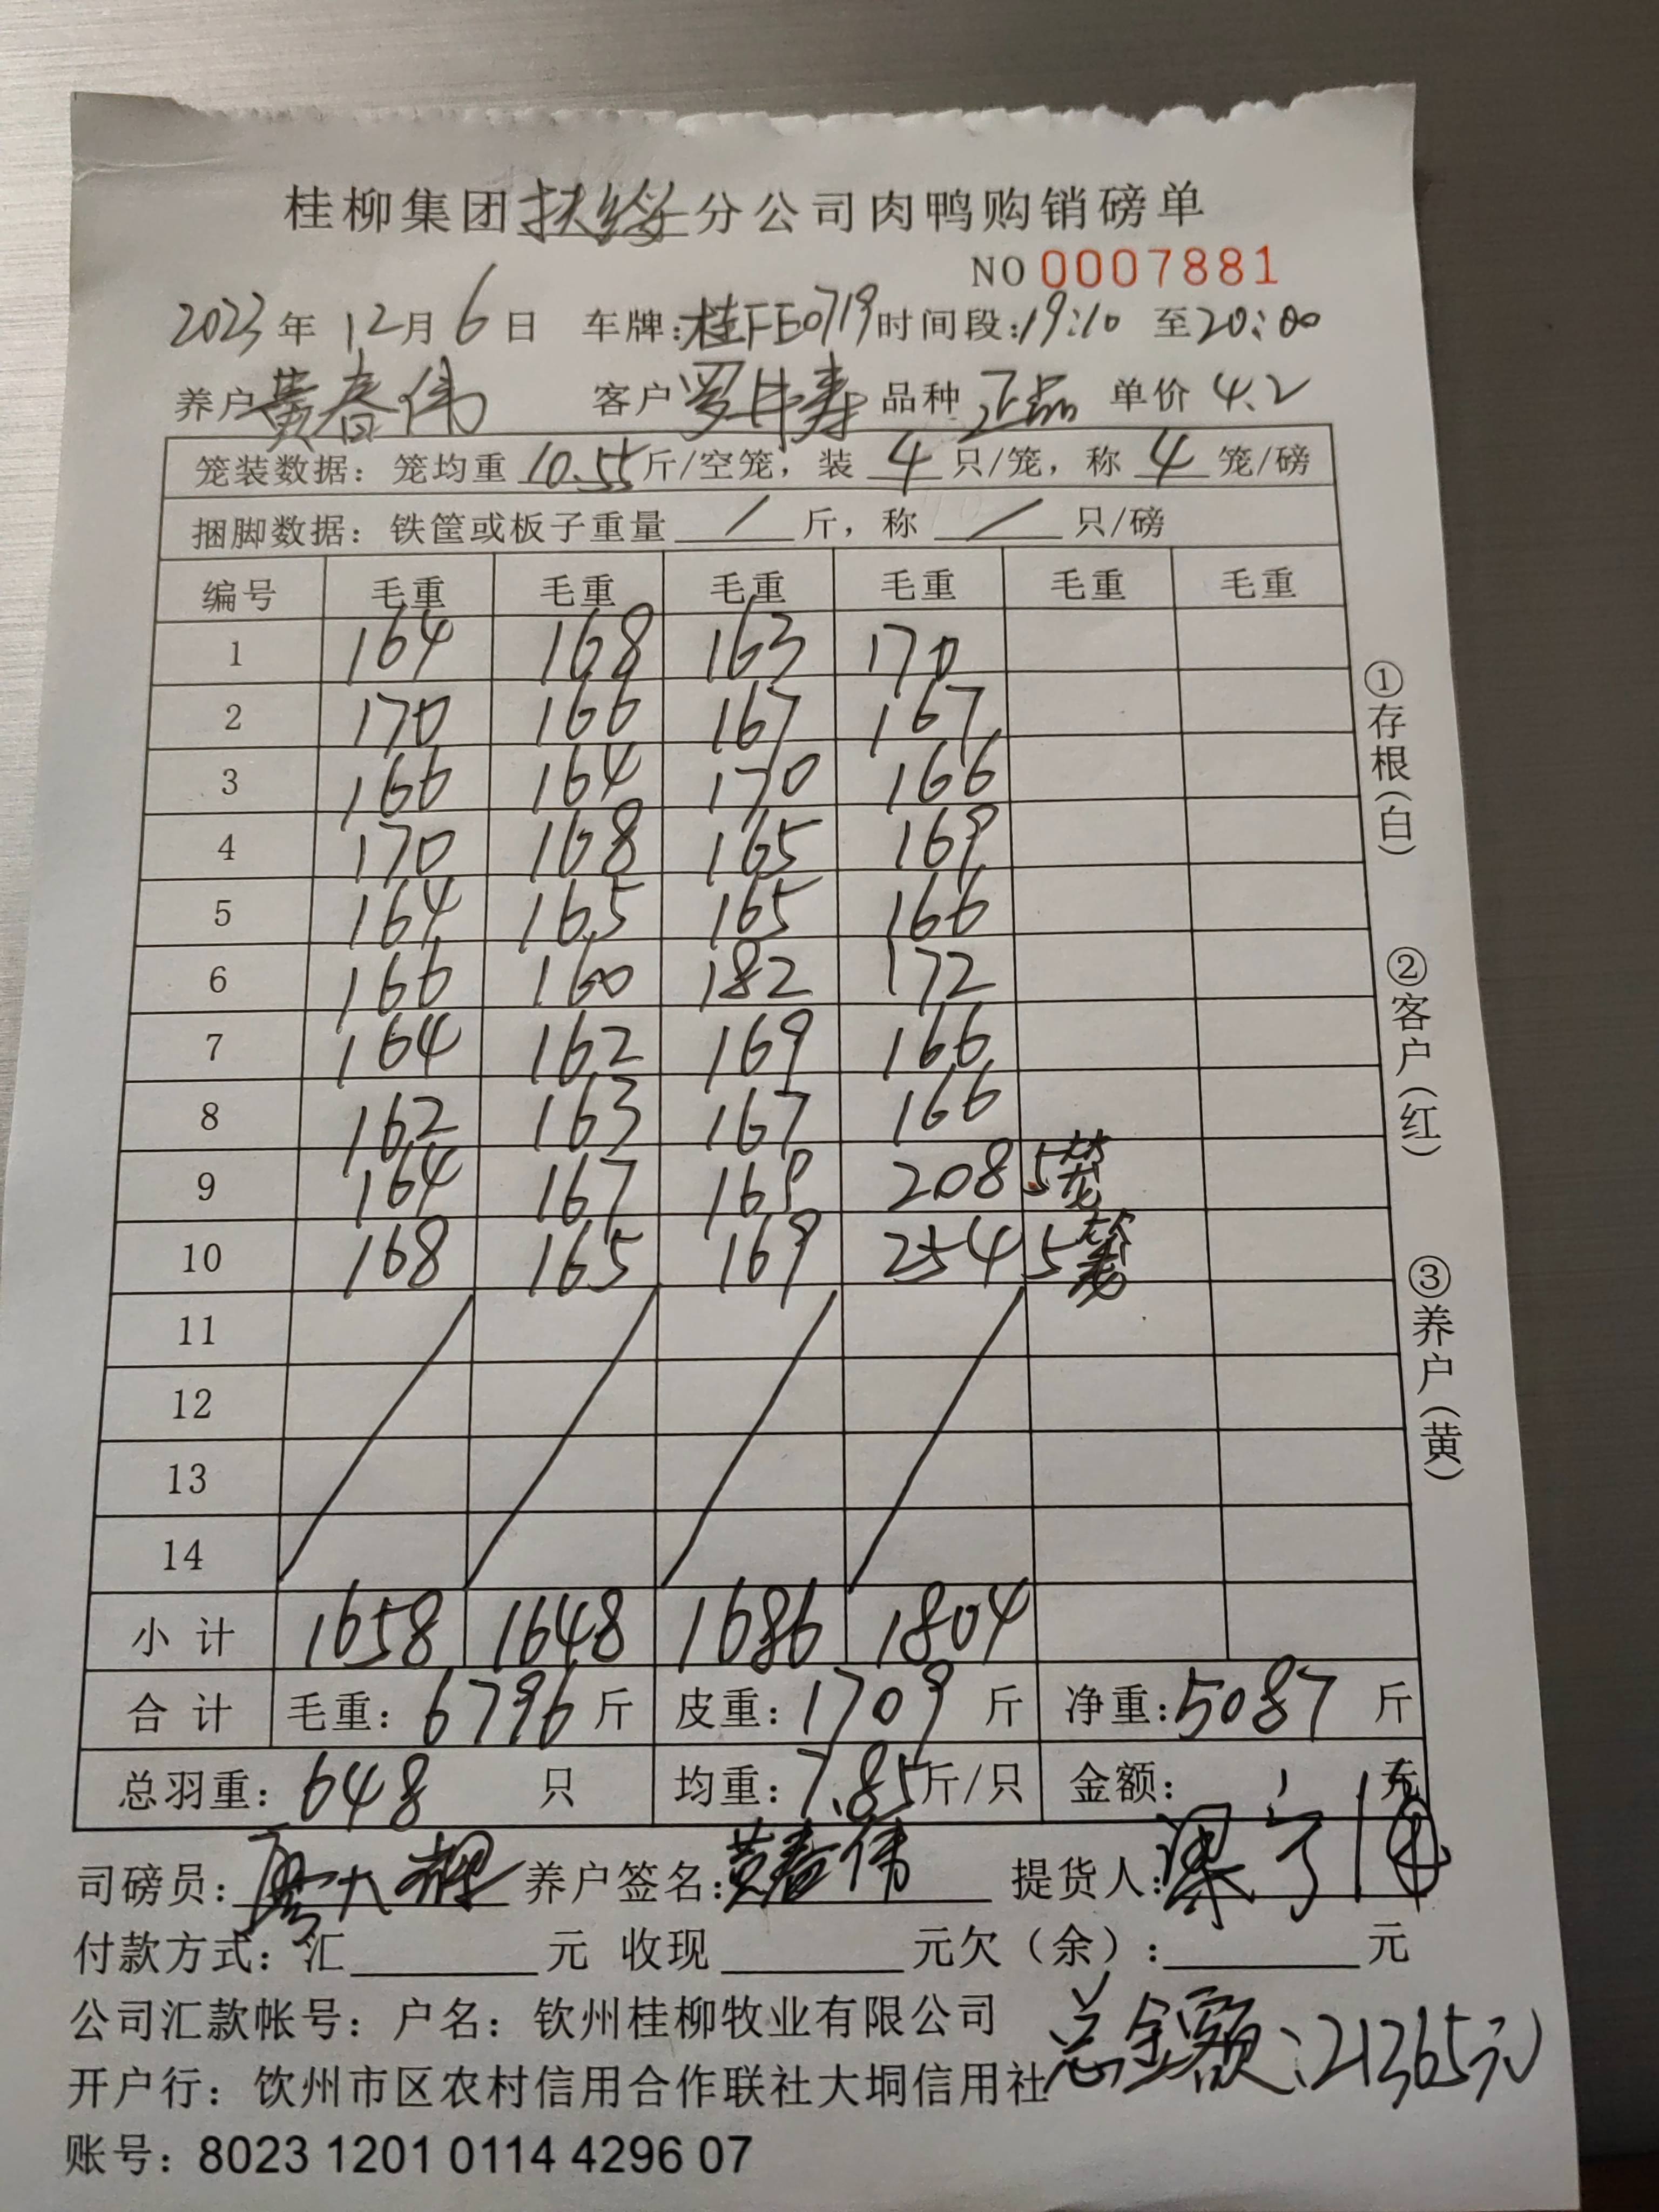 桂柳集团扶绥分公司肉鸭购销磅单
NO 0007881
2023年 12月 6日 车牌:桂FE0719时间段:19:10 至20:00
养户黄春伟 客户 罗牛寿 品种 正品 单价 4.2
笼装数据: 笼均重 10.55斤/空笼, 装 4 只/笼, 称 4 笼/磅
捆脚数据: 铁筐或板子重量 / 斤, 称 / 只/磅
编号 毛重 毛重 毛重 毛重 毛重 毛重
1 164 168 163 170
2 170 166 167 167
3 166 164 170 166
4 170 168 165 169
5 164 165 165 166
6 166 160 182 172
7 164 162 169 166
8 162 163 167 166
9 164 167 169 208 5笼
10 168 165 169 254 5笼
11
12
13
14
小计 1658 1648 1686 1804
合计 毛重: 6796斤 皮重: 1709 斤 净重:5087 斤
总羽重: 648 只 均重: 7.85斤/只 金额: 元
司磅员: 养户签名:黄春伟 提货人:
付款方式: 汇 元 收现 元欠(余): 元
公司汇款帐号: 户名: 钦州桂柳牧业有限公司
总金额:21365元
开户行: 钦州市区农村信用合作联社大垌信用社
账号: 8023 1201 0114 4296 07
①存根(白)
②客户(红)
③养户(黄)